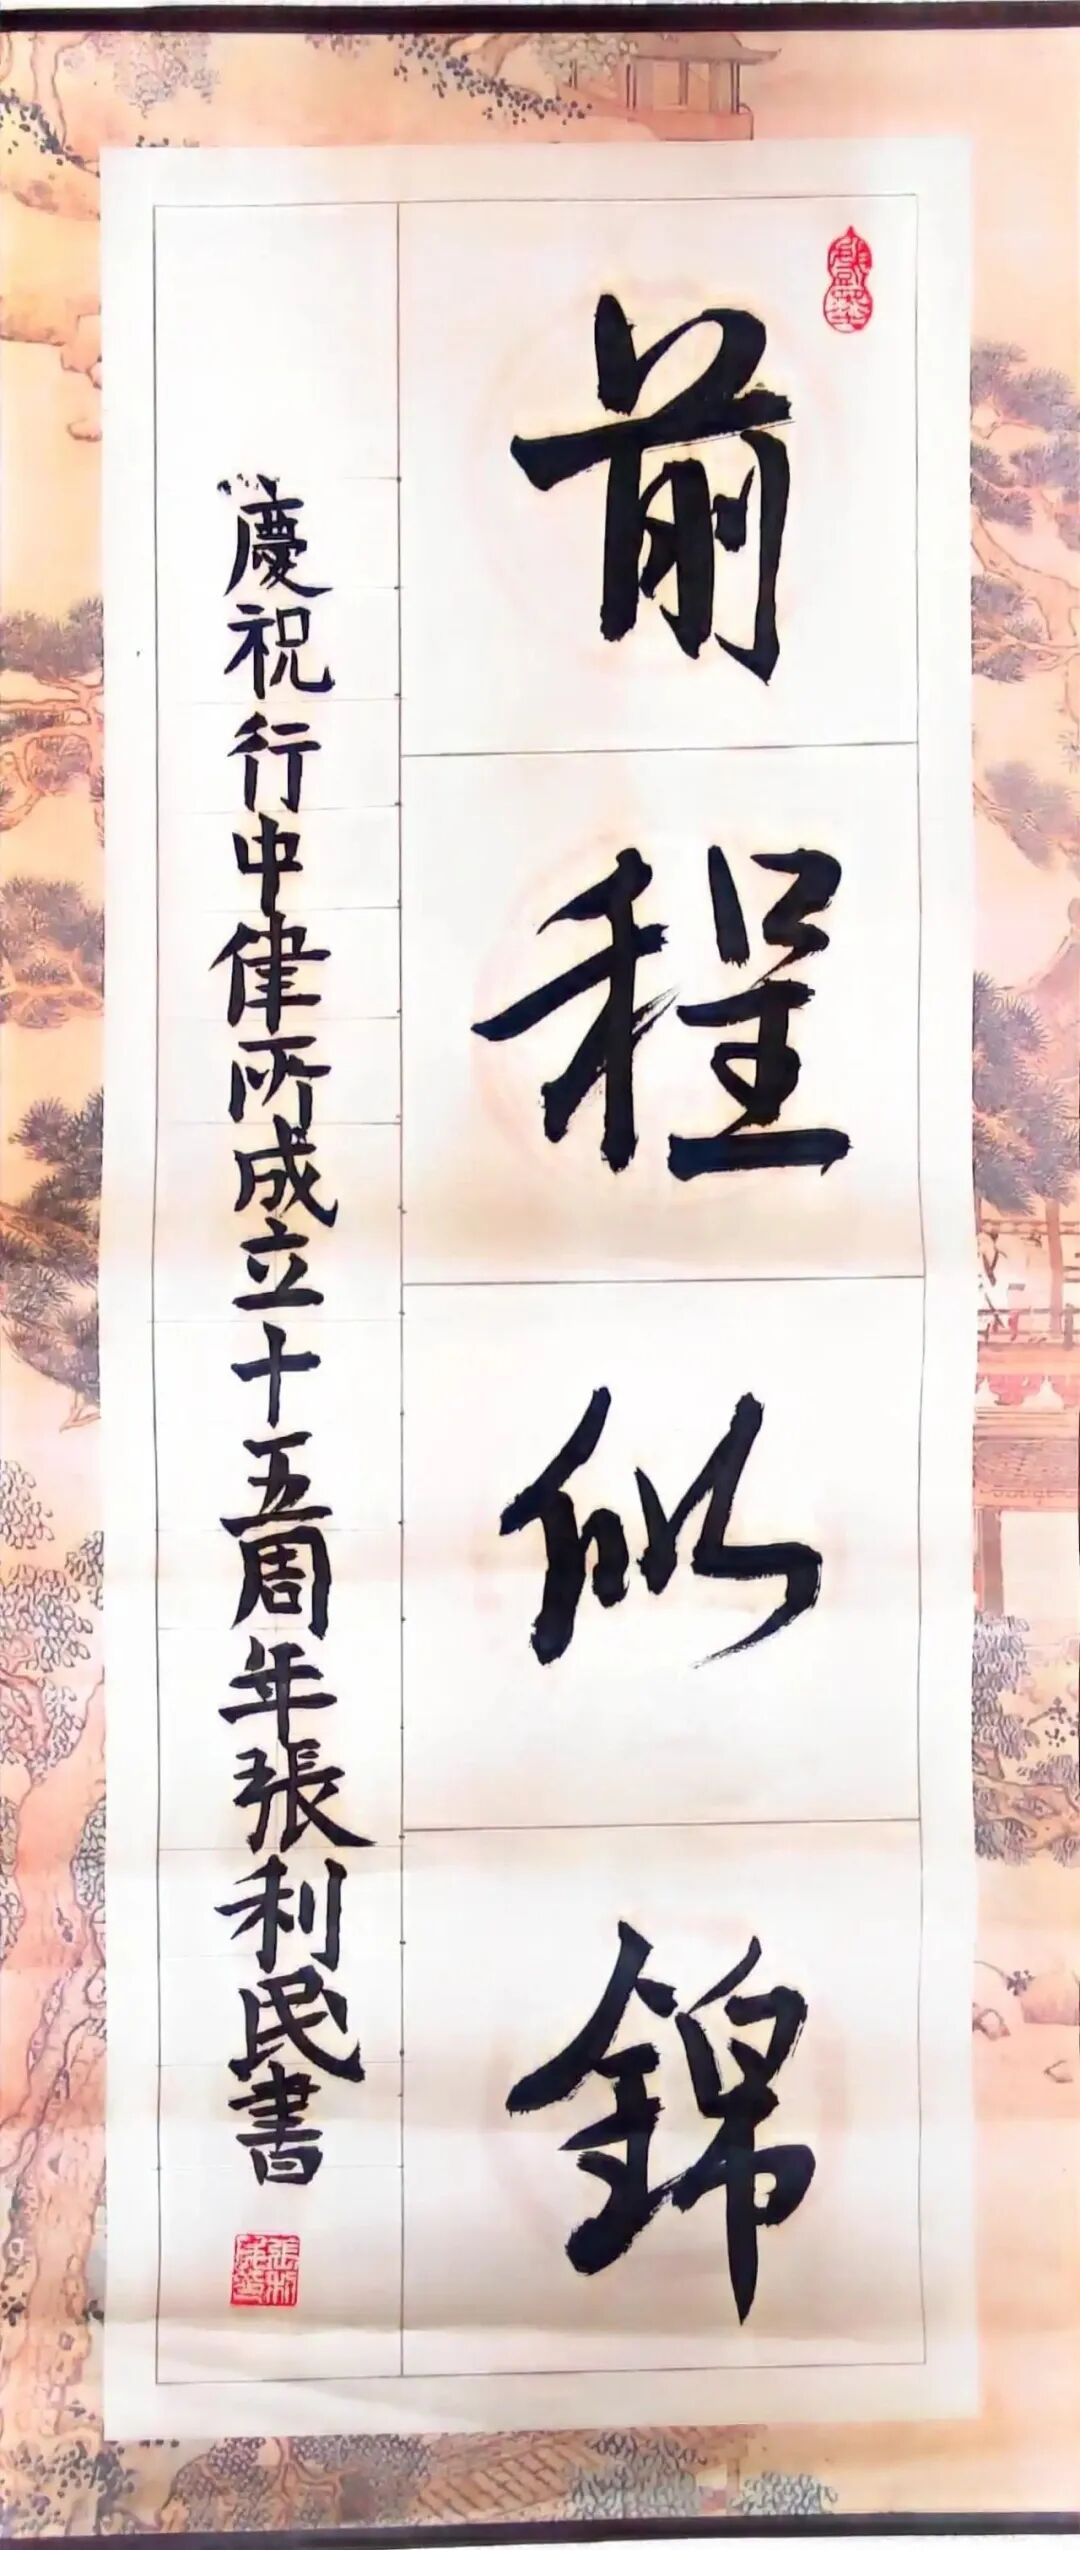 前程似錦
慶祝行中律所成立十五周年張利民書